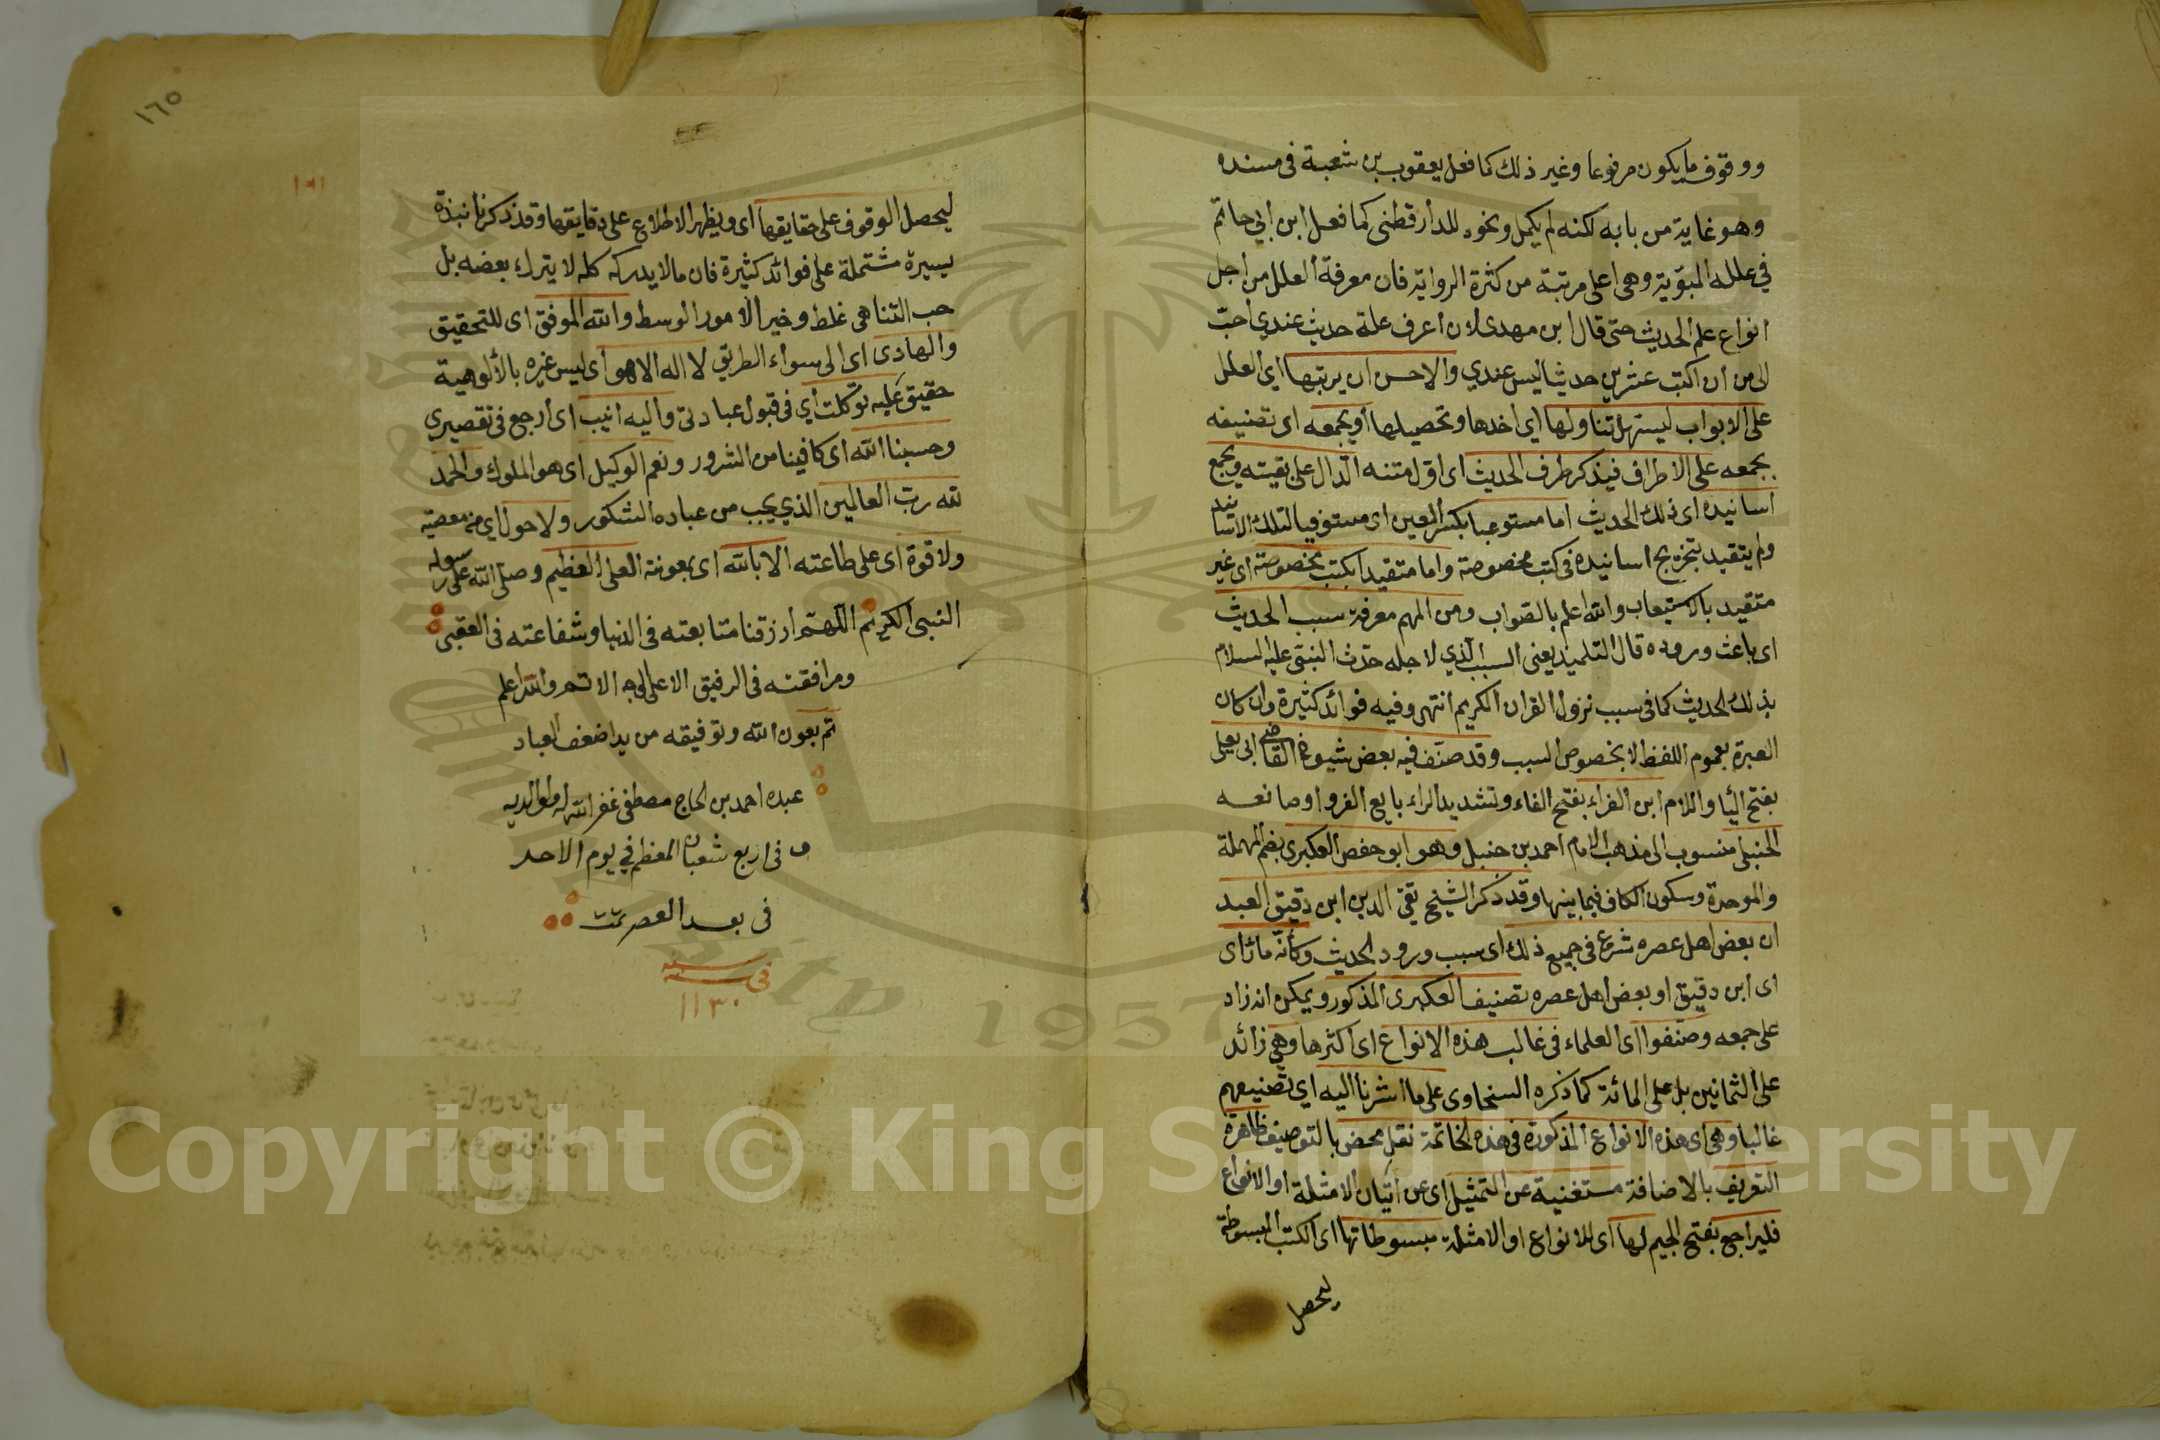 ووقوف ما يكون مرفوعا وغير ذلك كما فعل يعقوب بن شعبة فى مسنده
وهو غاية من بابه لكنه لم يكمل ونحوه للدارقطنى كما فعل ابن ابي حاتم
في علله المبوّبة وهى اعلى مرتبة من كثرة الرواية فان معرفة العلل من اجل
انواع علم الحديث حتى قال ابن مهدى لان اعرف علة حديث عندي احبّ
الى من ان اكتب عشرين حديثا ليس عندي والاحسن ان يرتبها اي العلل
على الابواب ليسهل تناولها اي اخذها وتحصيلها او يجمعه اى تصنيفه
بجمعه على الاطراف فيذكر طرف الحديث اى اول متنه الدال على بقيته ويجمع
اسانيده اى ذلك الحديث اما مستوعبا بكسر العين اى مستوفيا لتلك الاسانيد
ولم يتقيد بتخريج اسانيده فى كتب مخصوصة واما متقيدا بكتب مخصوصة اى غير
متقيد بالاستيعاب والله اعلم بالصواب ومن المهم معرفة سبب الحديث
اى باعث وروده قال التلميذ يعنى السبب الذي لاجله حدّث النبى عليه السلام
بذلك الحديث كما فى سبب نزول القران الكريم انتهى وفيه فوائد كثيرة وان كان
العبرة بعموم اللفظ لا بخصوص السبب وقد صنّف فيه بعض شيوخ القاضى ابى يعلى
بفتح اليا واللام ابن الفراء بفتح الفاء وتشديد الراء بايع الفرو او صانعه
الحنبلى منسوب الى مذهب الامام احمد بن حنبل وهو ابو حفص العكبرى بضم المهملة
والموحدة وسكون الكاف فيما بينها وقد ذكر الشيخ تقى الدين ابن دقيق العيد
ان بعض اهل عصره شرع فى جميع ذلك اى سبب ورود الحديث وكأنّه ما رأى
اى ابن دقيق او بعض اهل عصره تصنيف العكبرى المذكور ويمكن انه زاد
على جمعه وصنّفوا اى العلماء فى غالب هذه الانواع اى اكثرها وهى زائد
على الثمانين بل على المائة كما ذكره السخاوى على ما اشرنا اليه اي تصنيفهم
غالبا وهى اى هذه الانواع المذكورة فى هذه الخاتمة نقل محض بالتوصيف ظاهرة
التعريف بالاضافة مستغنية عن التمثيل اى عن اتيان الامثلة او الانواع
فليراجع بفتح الجيم لها اى للانواع او الامثلة مبسوطاتها اى الكتب المبسوطة
ليحصل
١٦٥
١٥١
ليحصل الوقوف على حقايقها اى ويظهر الاطلاع على دقايقها وقد ذكرنا نبذة
يسيرة مشتملة على فوائد كثيرة فان ما لا يدركه كله لا يترك بعضه بل
حب التناهى غلط وخير الامور الوسط والله الموفق اى للتحقيق
والهادى اى الى سواء الطريق لا اله الا هو اى ليس غيره بالألوهية
حقيق عليه توكلت أي فى قبول عبادتى واليه انيب اى أرجع فى تقصيري
وحسبنا الله اى كافينا من الشرور ونعم الوكيل اى هو الملوك والحمد
لله ربّ العالمين الذي يحب من عباده الشكور ولا حول اى من معصيته
ولا قوة اى على طاعته الا بالله اى بمعونته العلى العظيم وصلى الله على رسوله
النبى الكريم اللهم ارزقنا متابعته فى الدنيا وشفاعته فى العقبى
ومرافقته فى الرفيق الاعلى الوجه الاتم والله اعلم
تم بعون الله وتوفيقه من يد اضعف العباد
عبده احمد بن الحاج مصطفى غفر الله له ولوالديه
فى اربع شعبان المعظم في يوم الاحد
فى بعد العصر تمت
فى سنه
١١٣٠
King Saud University
1957
Copyright © King Saud University